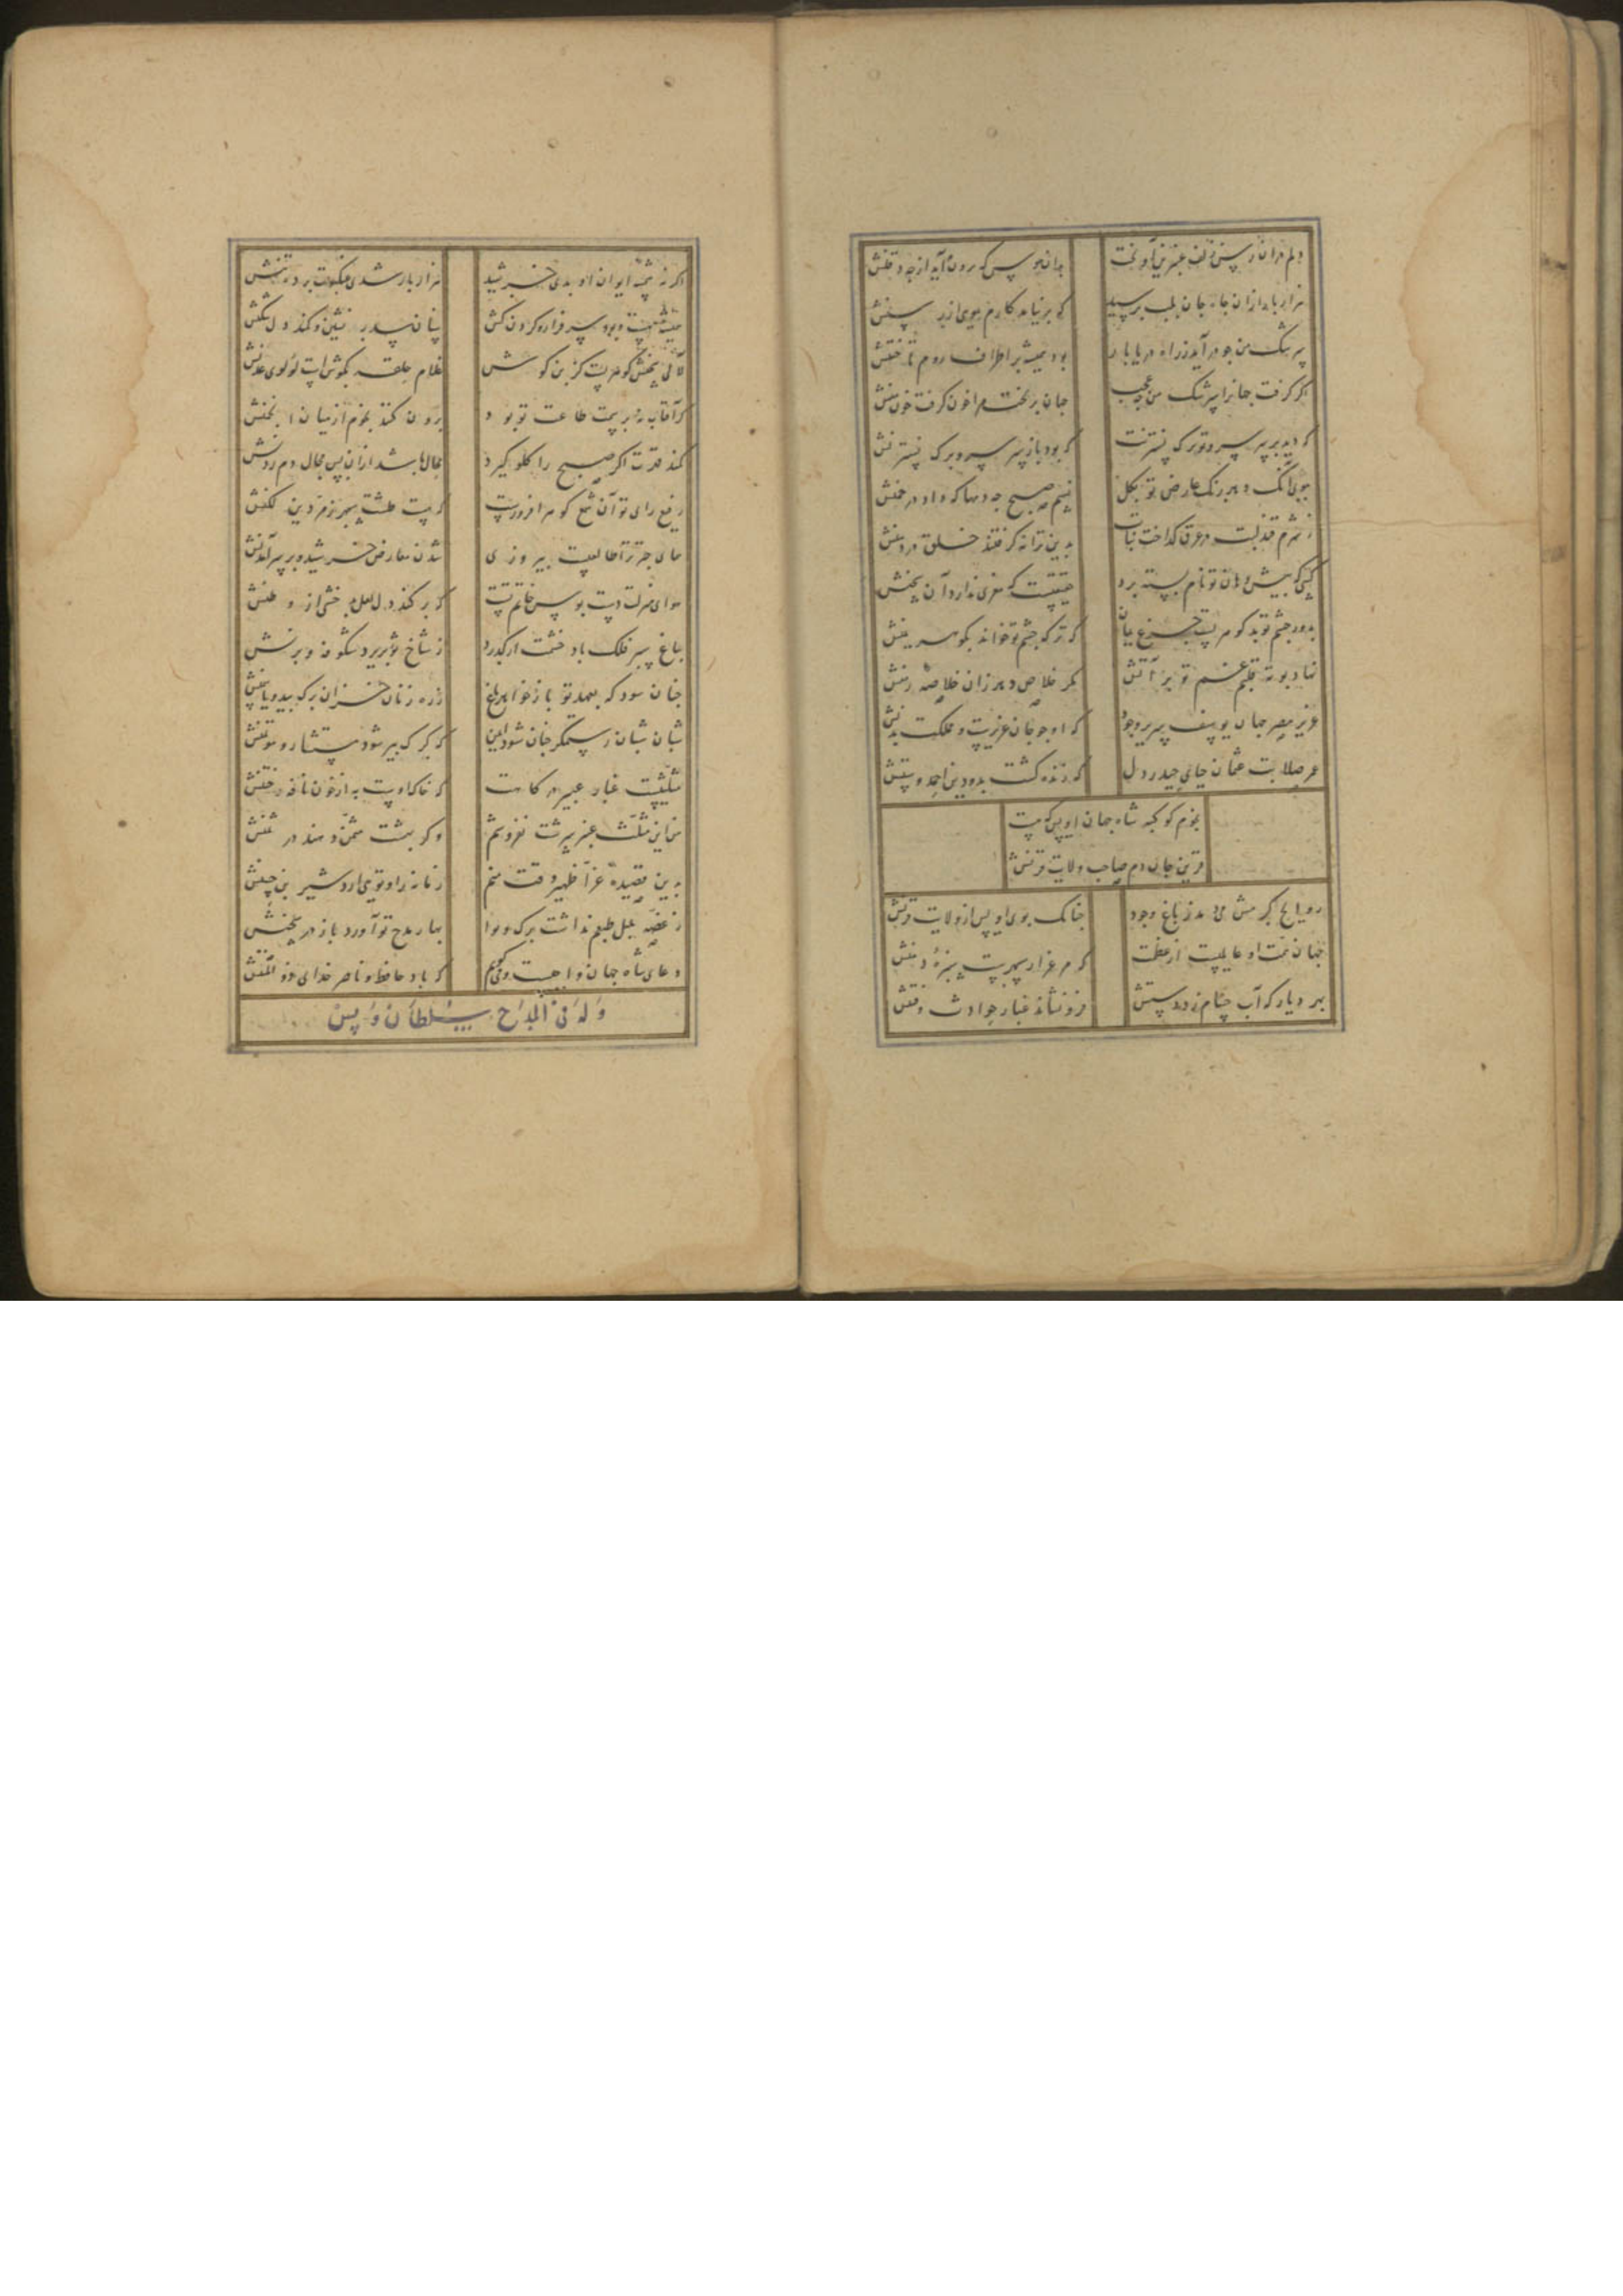 دلم در آن رسن زلف عنبرین آویخت
بدان هوس که برون آید از چه ذقنش
هزار بار از آن چاه جان بلب برسید
که برنیامد کارم بوی از رسنش
سرشک من چو درآید ز راه دریابار
بود همیشه بر اطراف روم تاختنش
اگر گرفت جهانرا سرشک من چه عجب
که دید بر سر سرو تو برک نسترنت
که بود باز سر سرو برک نسترنش
ببوی آنک دهد رنک عارض تو بکل
نسیم صبح چه دمها که داد در چمنش
ز شرم قند لبت در عرق کداخت نبات
بدین ترانه گرفتند خلق در دهنش
کسی که پیش دهان تو نام پسته برد
حقیقتست که مغزی ندارد آن سخنش
بدور چشم تو بد کوهرست جزع یمان
که ترک چشم تو خواند بکوهر یمنش
نهاد بوته قلبم غم تو بر آتش
مگر خلاص دهد زان خلاصه زمنش
عزیز مصر جهان یوسف سریر وجود
که او چو جان عزیزست و مملکت بدنش
عمر صلابت عثمان حیای حیدر دل
که زنده گشت بدو دین احمد و سننش
نجوم کوکبه شاه جهان اویس که هست
قرین جان و دم صاحب ولایت قرنش
روایح کرمش می دمد ز باغ وجود
چنانک بوی اویس از ولایت قرنش
جهان همت او عالمیست از عظمت
که مرغزار سپهرست سبزهٔ دمنش
بهر دیار که آب حسام زد دستش
فرو نشاند غبار حوادث و فتنش
اگر نه شمسه ایوان او بدی خورشید
هزار بار شدی عنکبوت پرده تنش
غلام حلقه بگوش است لؤلوی عدنش
گر آفتاب نه بر سمت طاعت تو بود
برون کند نجوم از میان انجمنش
کند قدرت اگر صبح را گلو گیرد
محال باشد از آن پس مجال دم زدنش
رفیع رای تو آن شمع گوهر افروزست
که هست طشت سپهر زمردین لکنش
همای چتر ترا طالعیست بیروزی
شدن معارض خورشید و بر سر آمدنش
هوای منزلت دست بوس خاتم تست
که برکند دل لعل بدخشی از وطنش
بباغ سبز فلک باد خشمت ار گذرد
ز شاخ ثور بریزد شکوفه و پرنش
چنان شود که بعهد تو باز خواهد باغ
زره زنان خزان برک بید و یاسمنش
شبان شبان ز ستمکر چنان شود ایمن
که کرک پیر شود مستشار و مؤتمنش
مثلثیست غبار عبیر درکاهت
که خاک اوست به از خون نافه ختنش
من این مثلث عنبر سرشت نفروشم
و کر بهشت مثمن دهند در ثمنش
بدین قصیده غرا ظهیر وقت منم
زمانه را و تویی اردشیر بن حسنش
ز غصه بلبل طبعم نداشت برک و نوا
بهار مدح تو آورد باز در سخنش
دعای شاه جهان واجبست و می گویم
که باد حافظ و ناصر خدای ذوالمننش
وله فی المداح سلطان اویس